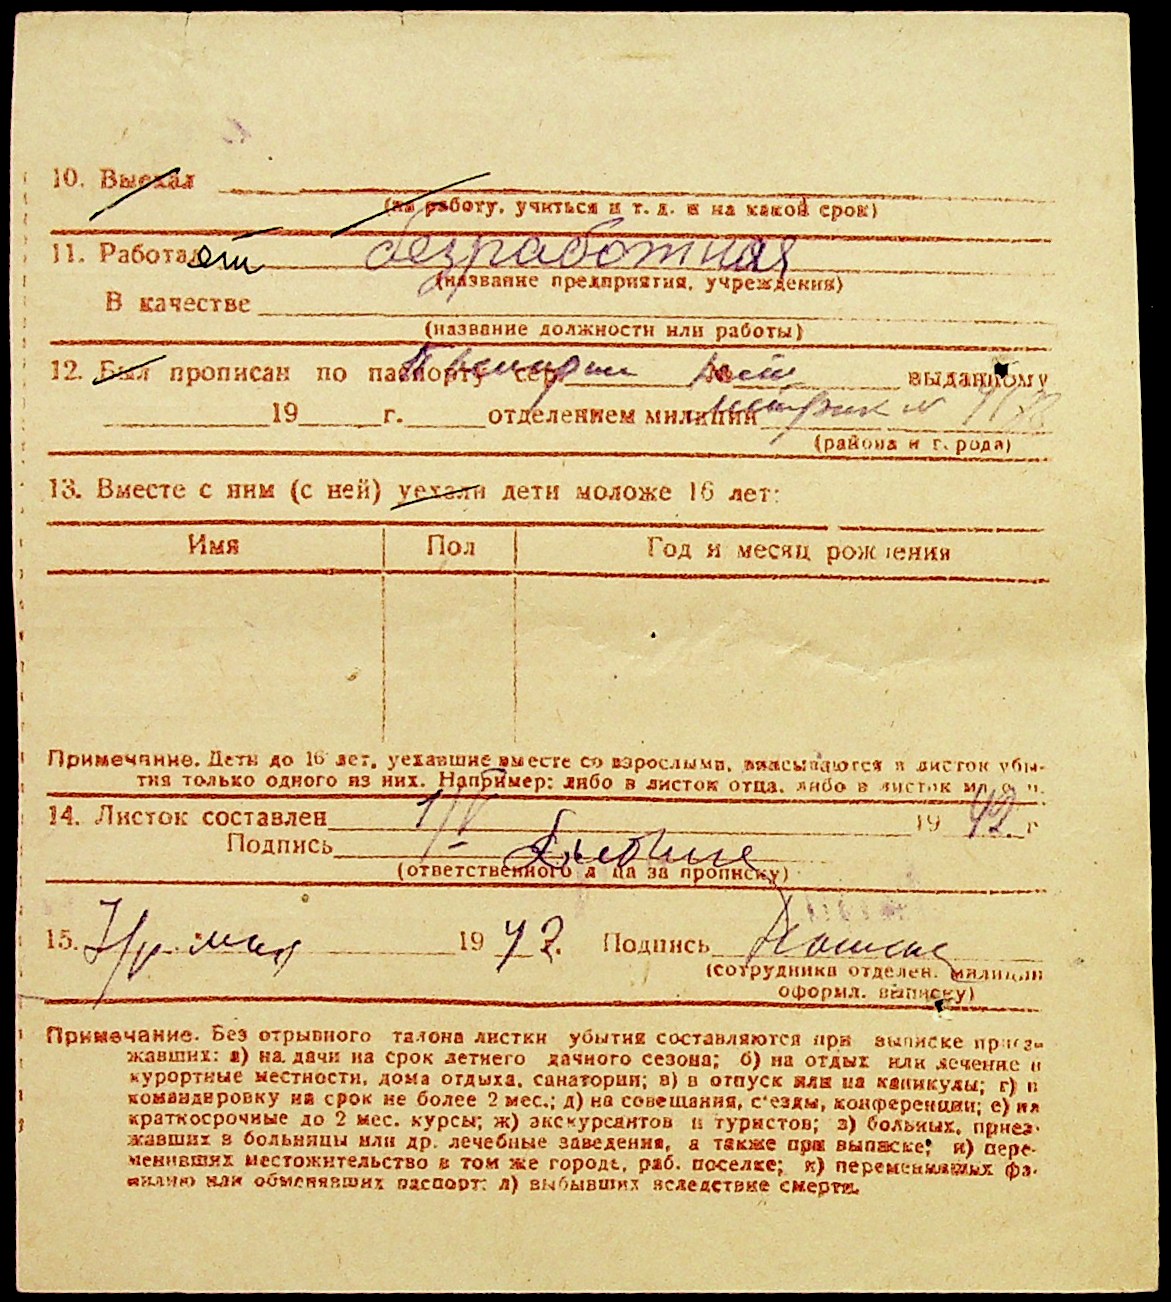 10. Выехал
(на работу, учиться и т. д. и на какой срок)
11. Работает безработная
(название предприятия, учреждения)
В качестве
(название должности или работы)
12. Был прописан по паспорту сер. № выданному
19 г. отделением милиции
(района и города)
13. Вместе с ним (с ней) уехали дети моложе 16 лет:
Имя Пол Год и месяц рождения
Примечание. Дети до 16 лет, уехавшие вместе со взрослыми, вписываются в листок убы-
тия только одного из них. Например: либо в листок отца, либо в листок
14. Листок составлен 1/V 1942 г
Подпись
(ответственного лица за прописку)
15. мая 1942. Подпись
(сотрудника отделен. милиции
оформл. выписку)
Примечание. Без отрывного талона листки убытия составляются при выписке приез-
жавших: а) на дачи на срок летнего дачного сезона; б) на отдых или лечение в
курортные местности, дома отдыха, санатории; в) в отпуск или на каникулы; г) в
командировку на срок не более 2 мес.; д) на совещания, с'езды, конференции; е) на
краткосрочные до 2 мес. курсы; ж) экскурсантов и туристов; з) больных, приез-
жавших в больницы или др. лечебные заведения, а также при выписке; и) пере-
менивших местожительство в том же городе, раб. поселке; к) переменивших фа-
милию или обменявших паспорт; л) выбывших вследствие смерти.